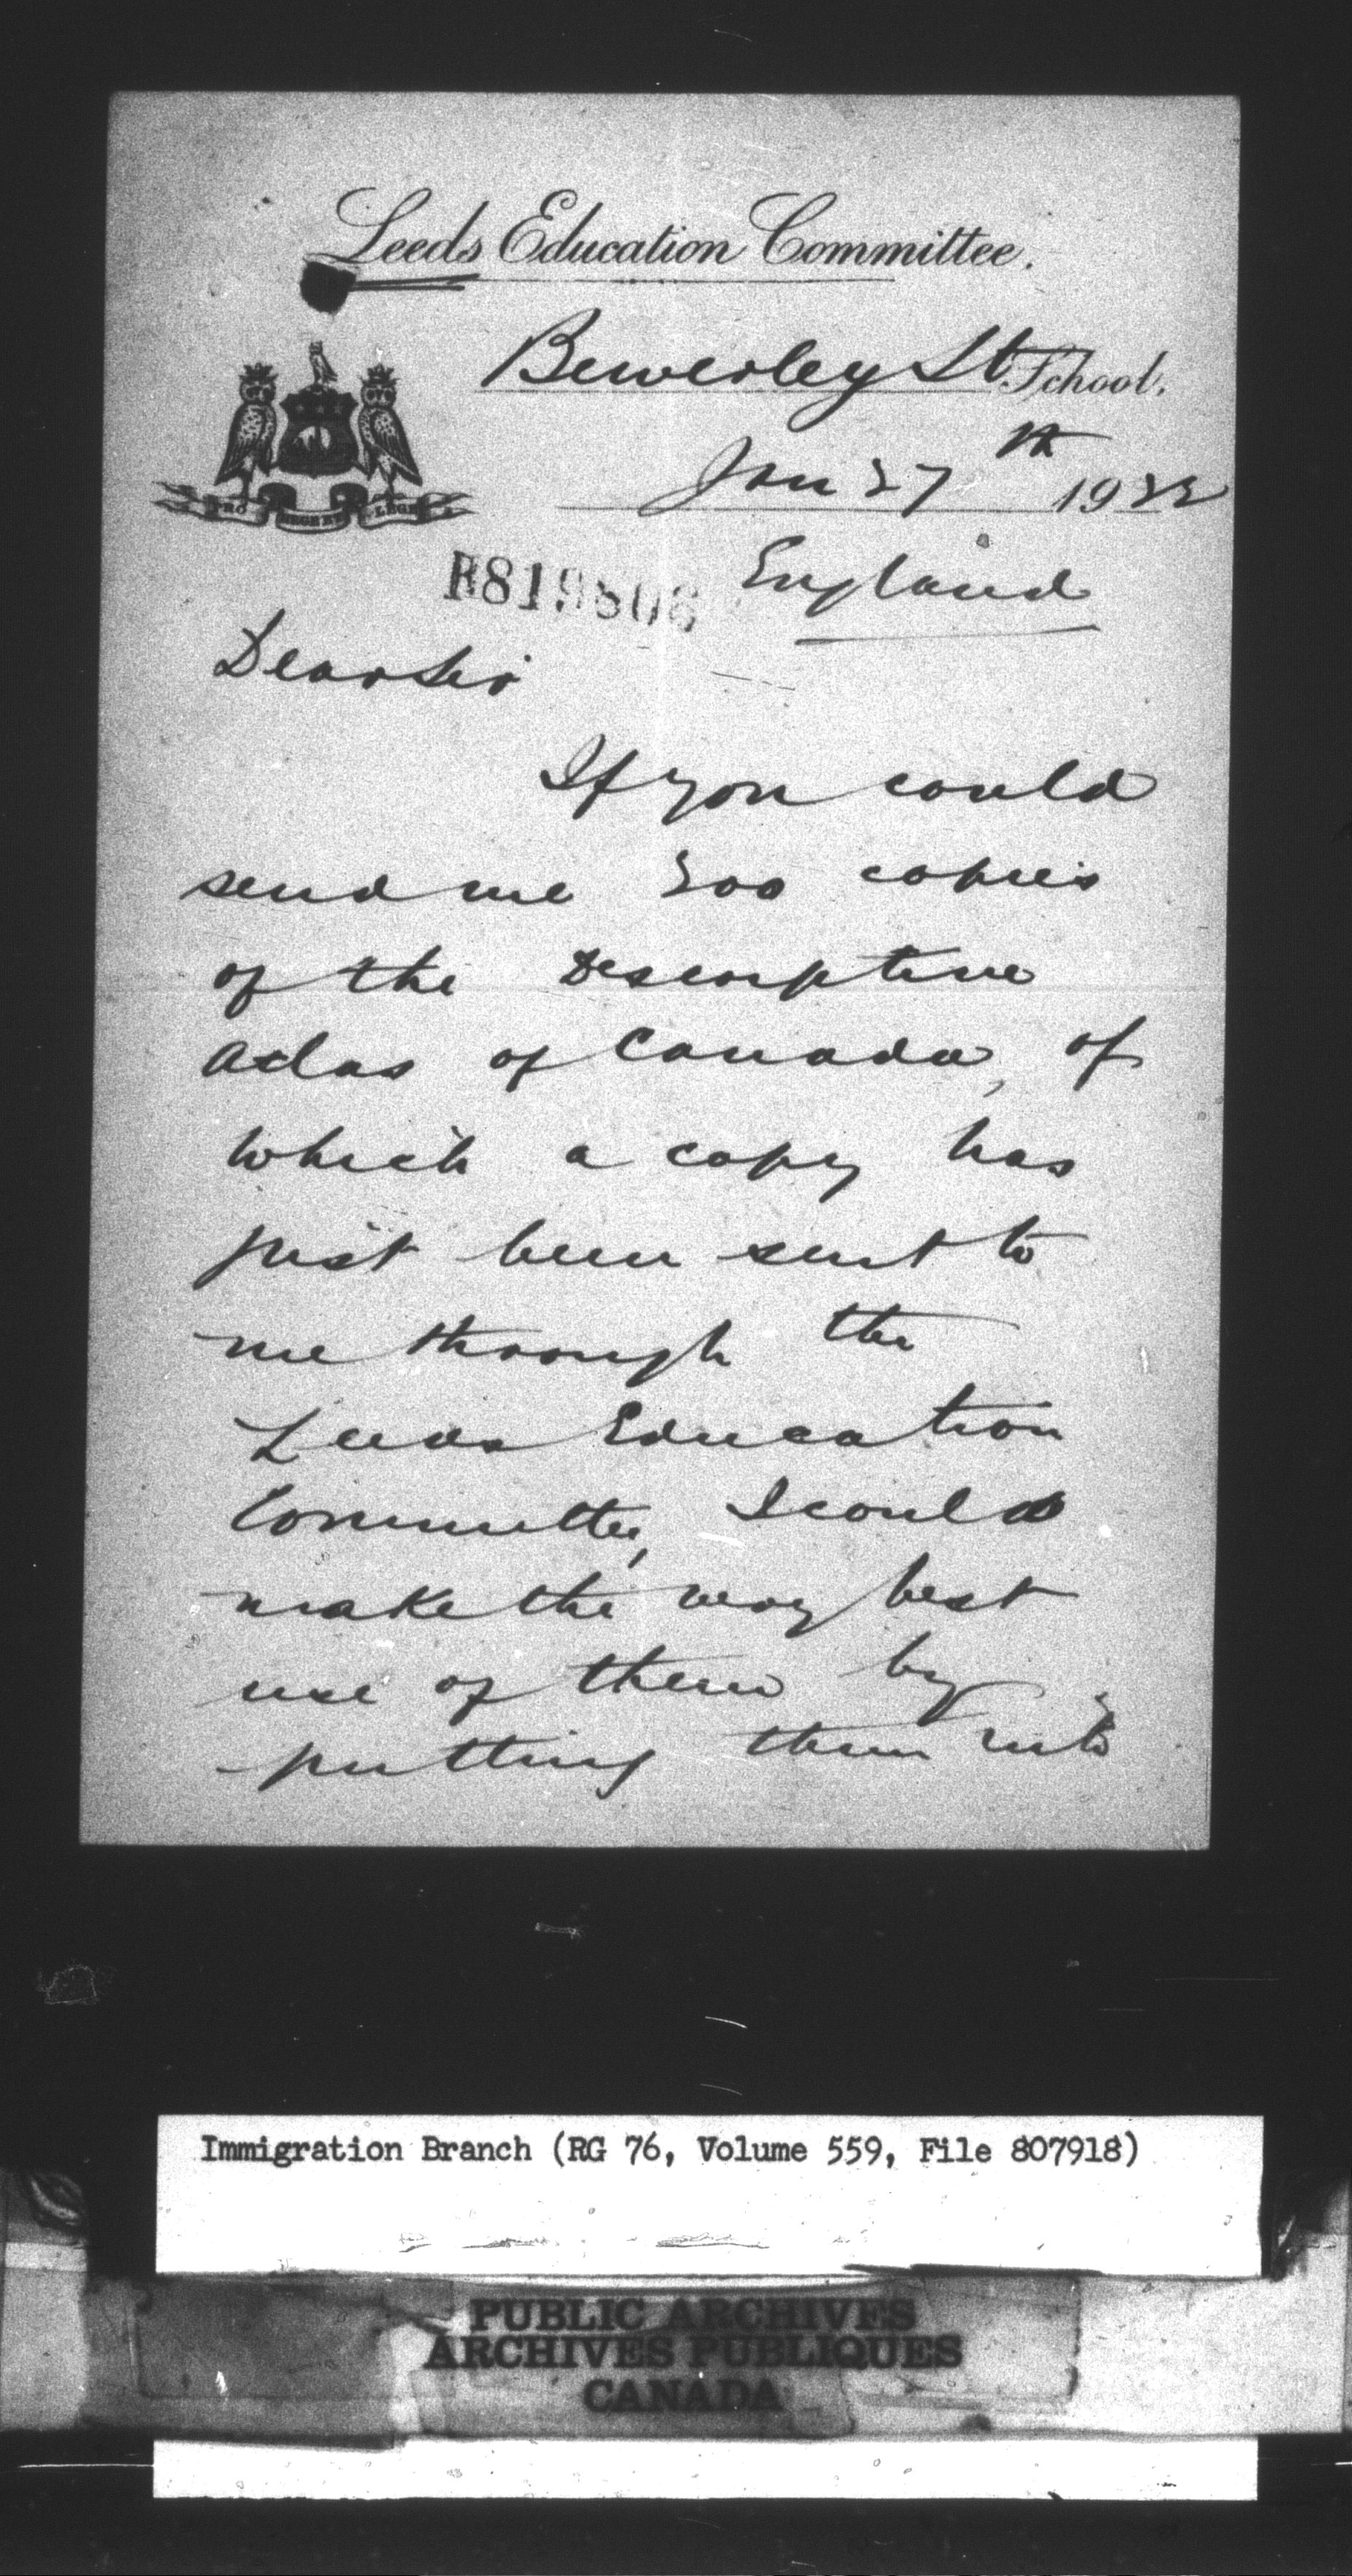 Leeds Education Committee.
Bewerley St. School.
Jan 27th 1922
PRO REGE ET LEGE
England
Dear Sir
If you could
send me 200 copies
of the Descriptive
Atlas of Canada, of
which a copy has
just been sent to
me through the
Leeds Education
Committee, I could
make the very best
use of them by
putting them into
Immigration Branch (RG 76, Volume 559, File 807918)
PUBLIC ARCHIVES
ARCHIVES PUBLIQUES
CANADA